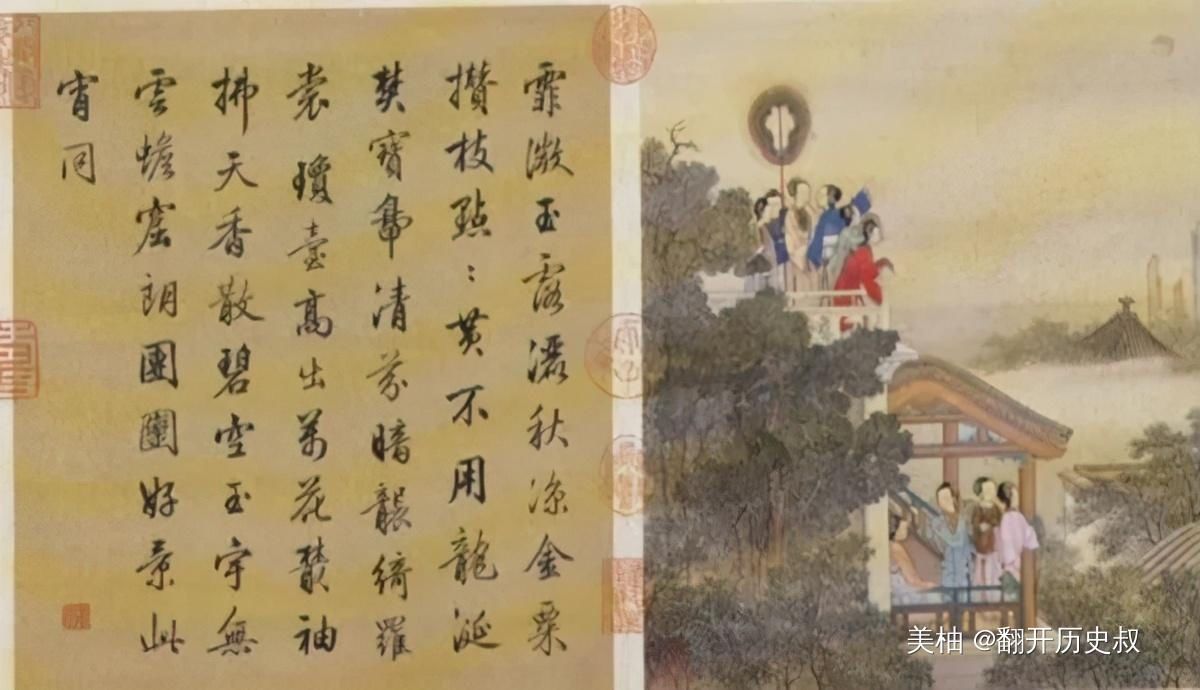 霏溦玉露灑秋凉金粟
攢枝點〻黄不用龍涎
焚寶鼎清芬暗襲綺羅
裳瓊臺高出萬花叢袖
拂天香散碧空玉宇無
雲蟾窟朗團團好景此
宵同
美柚 @翻开历史叔